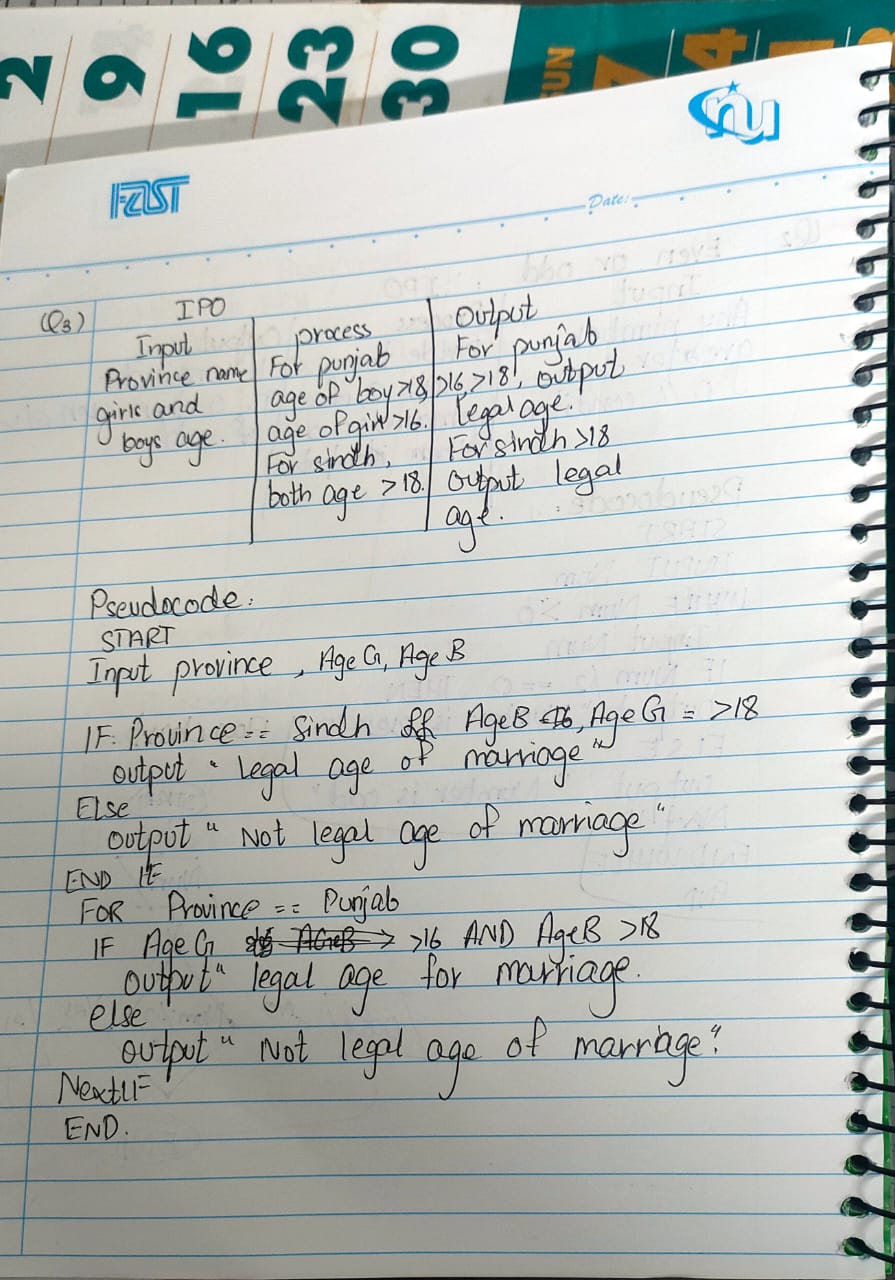 2 9 16 23 30
SUN
4
FAST
nu
Date:
Q3) IPO
Input
Province name
girls and
boys age.
process
For punjab
age of boy >18,
age of girl >16.
For sindh,
both age >18.
Output
For punjab
>16, >18, output
legal age.
For sindh >18
output legal
age.
Pseudocode:
START
Input province, AgeG, AgeB
IF Province == Sindh && AgeB, AgeG = >18
output " legal age of marriage"
Else
output " Not legal age of marriage"
END IF
FOR Province == Punjab
IF AgeG >16 AND AgeB >18
output " legal age for marriage.
else
output " Not legal age of marriage"
NextIF
END.